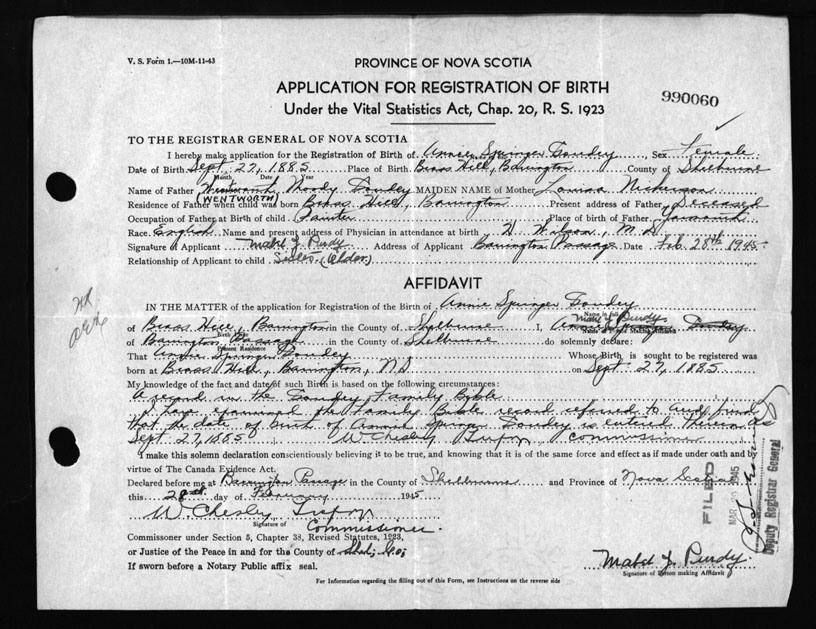 V. S. Form 1.—10M-11-43
PROVINCE OF NOVA SCOTIA
APPLICATION FOR REGISTRATION OF BIRTH
Under the Vital Statistics Act, Chap. 20, R. S. 1923
990060
TO THE REGISTRAR GENERAL OF NOVA SCOTIA
I hereby make application for the Registration of Birth of Annie Springer Doudey Sex Female
Date of Birth Sept. 27, 1885 Place of Birth Brass Hill, Barrington County of Shelburne
Month Date Year
Name of Father Wentworth Moody Doudey MAIDEN NAME of Mother Louisa Nickerson
(WENTWORTH)
Residence of Father when child was born Brass Hill, Barrington Present address of Father Deceased
Occupation of Father at Birth of child Painter Place of birth of Father Yarmouth
Race English Name and present address of Physician in attendance at birth H. Wilson, M.D.
Signature of Applicant Mabd Y. Purdy Address of Applicant Barrington Passage Date Feb. 28th 1945
Relationship of Applicant to child Sister (Elder)
AFFIDAVIT
IN THE MATTER of the application for Registration of the Birth of Annie Springer Doudey
Name in full
Mabd Y Purdy
of Brass Hill, Barrington in the County of Shelburne I, Doudey
Birth Place
of Barrington Passage in the County of Shelburne do solemnly declare:
Present Residence
That Annie Springer Doudey Whose Birth is sought to be registered was
born at Brass Hill, Barrington, NS on Sept. 27, 1885
My knowledge of the fact and date of such Birth is based on the following circumstances:
A record in the Doudey Family Bible
I have examined the Family Bible record referred to and find
that the date of birth of Annie Springer Doudey is entered therein as
Sept. 27, 1885 W Chesley commissioner
I make this solemn declaration conscientiously believing it to be true, and knowing that it is of the same force and effect as if made under oath and by
virtue of The Canada Evidence Act.
Declared before me at Barrington Passage in the County of Shelburne and Province of Nova Scotia
this 28th day of February 1945
W. Chesley
Signature of
Commissioner.
Commissioner under Section 5, Chapter 38, Revised Statutes, 1923,
or Justice of the Peace in and for the County of Shel. Co.
If sworn before a Notary Public affix seal.
Mabd Y. Purdy
Signature of Person making Affidavit
For Information regarding the filling out of this Form, see Instructions on the reverse side
FILED
MAR 1945
Deputy Registrar General